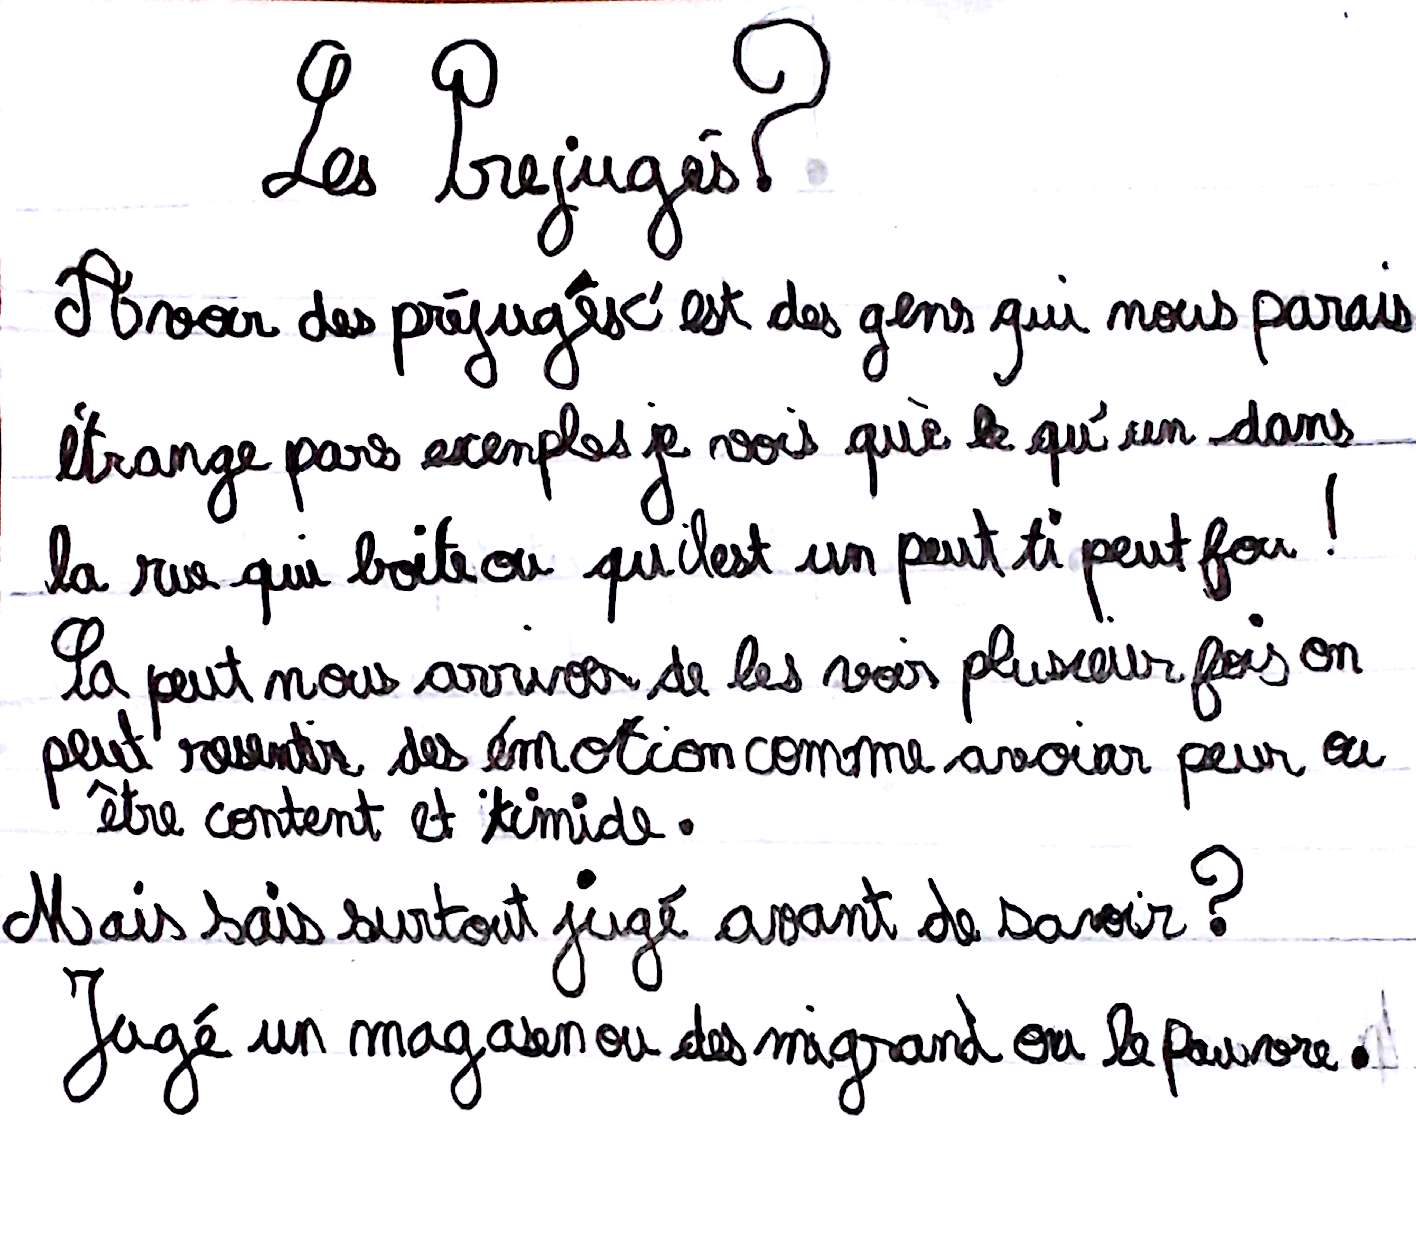 Les Prejugés?
Avoir des préjugés c'est des gens qui nous parais
étrange pars exemples je vois què le qu'un dans
la rue qui boite ou qu'ilest un peut ti peut fou !
Sa peut nous arriver de les voir plusieur fois on
peut resentir des émotion comme avoiar peur ou
être content et timide.
Mais sais surtout jugé avant de savoir?
Jugé un magasen ou des migrand ou le pauvre.